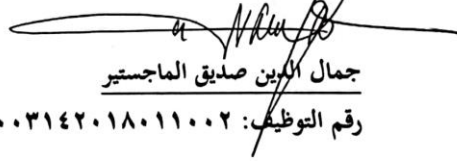 جمال الدين صديق الماجستير
رقم التوظيف: ٠٠٣١٤٢٠١٨٠١١٠٠٢